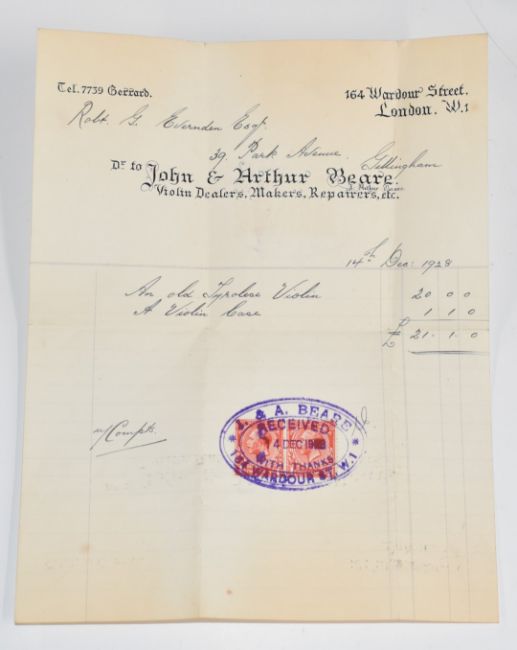 Tel. 7739 Gerrard.
164 Wardour Street.
London. W.1
Robt. G. Evernden Esq.
39, Park Avenue. Gillingham
Dr. to John & Arthur Beare.
Violin Dealers, Makers, Repairers, etc.
14th Dec: 1928
An old Tyrolese Violin 20 0 0
A Violin Case 1 1 0
£ 21. 1. 0
w/ Compts.
J. & A. BEARE
RECEIVED
14 DEC 1928
WITH THANKS
164 WARDOUR ST. W.1